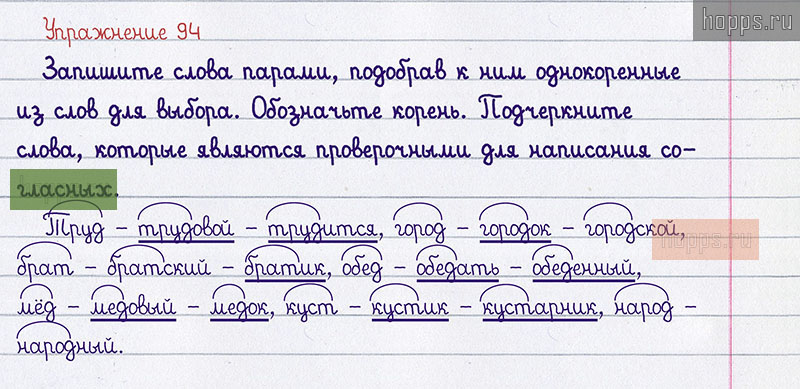 hopps.ru
Упражнение 94
Запишите слова парами, подобрав к ним однокоренные
из слов для выбора. Обозначьте корень. Подчеркните
слова, которые являются проверочными для написания со-
гласных.
Труд – трудовой – трудится, город – городок – городской,
hopps.ru
брат – братский – братик, обед – обедать – обеденный,
мёд – медовый – медок, куст – кустик – кустарник, народ –
народный.